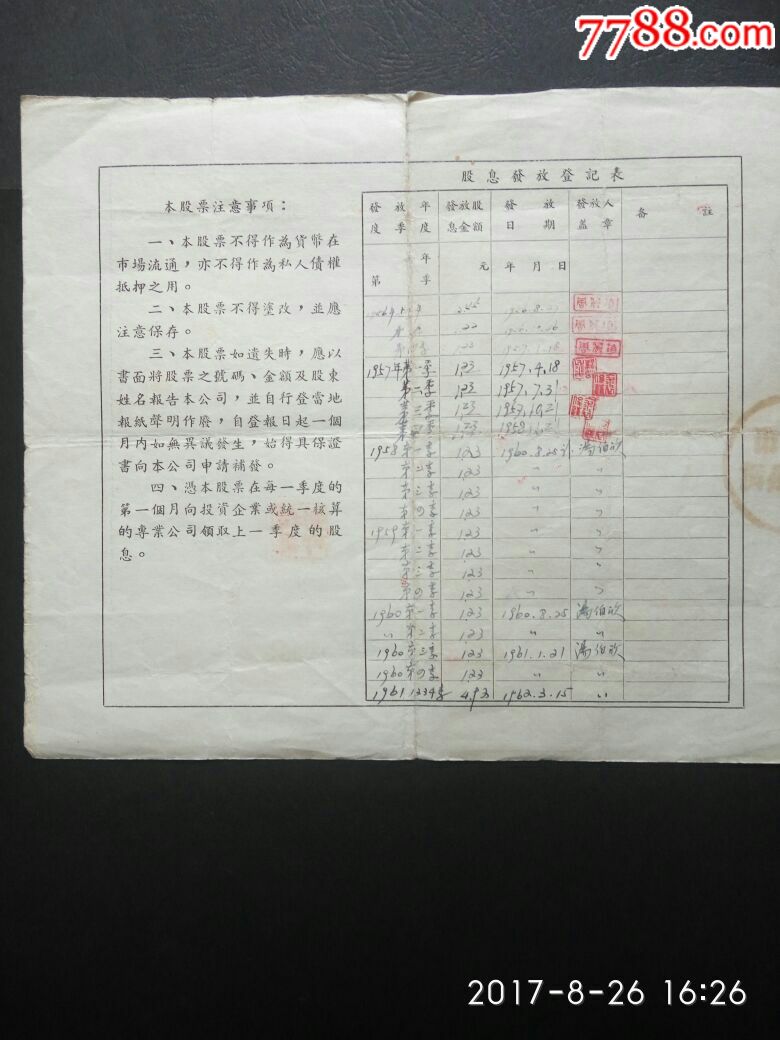 7788.com
本股票注意事項：
一、本股票不得作為貨幣在
市場流通，亦不得作為私人債權
抵押之用。
二、本股票不得塗改，並應
注意保存。
三、本股票如遺失時，應以
書面將股票之號碼、金額及股東
姓名報告本公司，並自行登當地
報紙聲明作廢，自登報日起一個
月內如無異議發生，始得具保證
書向本公司申請補發。
四、憑本股票在每一季度的
第一個月向投資企業或統一核算
的專業公司領取上一季度的股
息。
股息發放登記表
發放年 發放股 發放 發放人 备註
度季度 息金額 日期 蓋章
年
第季 元 年月日
1957年第一季 1.23 1957.4.18
第二季 1.23 1957.7.31
第三季 1.23 1957.10.21
1.23
1958第一季 1.23 1960.8.25
第二季 1.23 〃 〃
第三季 1.23 〃 〃
第四季 1.23 〃 〃
1959第一季 1.23 〃 〃
第二季 1.23 〃 〃
第三季 1.23 〃 〃
第四季 1.23 〃 〃
1960第一季 1.23 1960.8.25
〃 第二季 1.23 〃 〃
1960第三季 1.23 1961.1.21
1960第四季 1.23 〃 〃
1961 1234季 4.92 1962.3.15 〃
2017-8-26 16:26